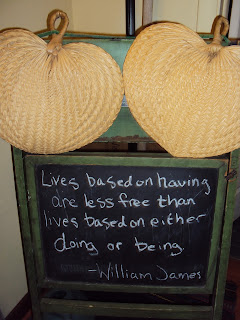 Lives based on having
are less free than
lives based on either
doing or being.
- William James